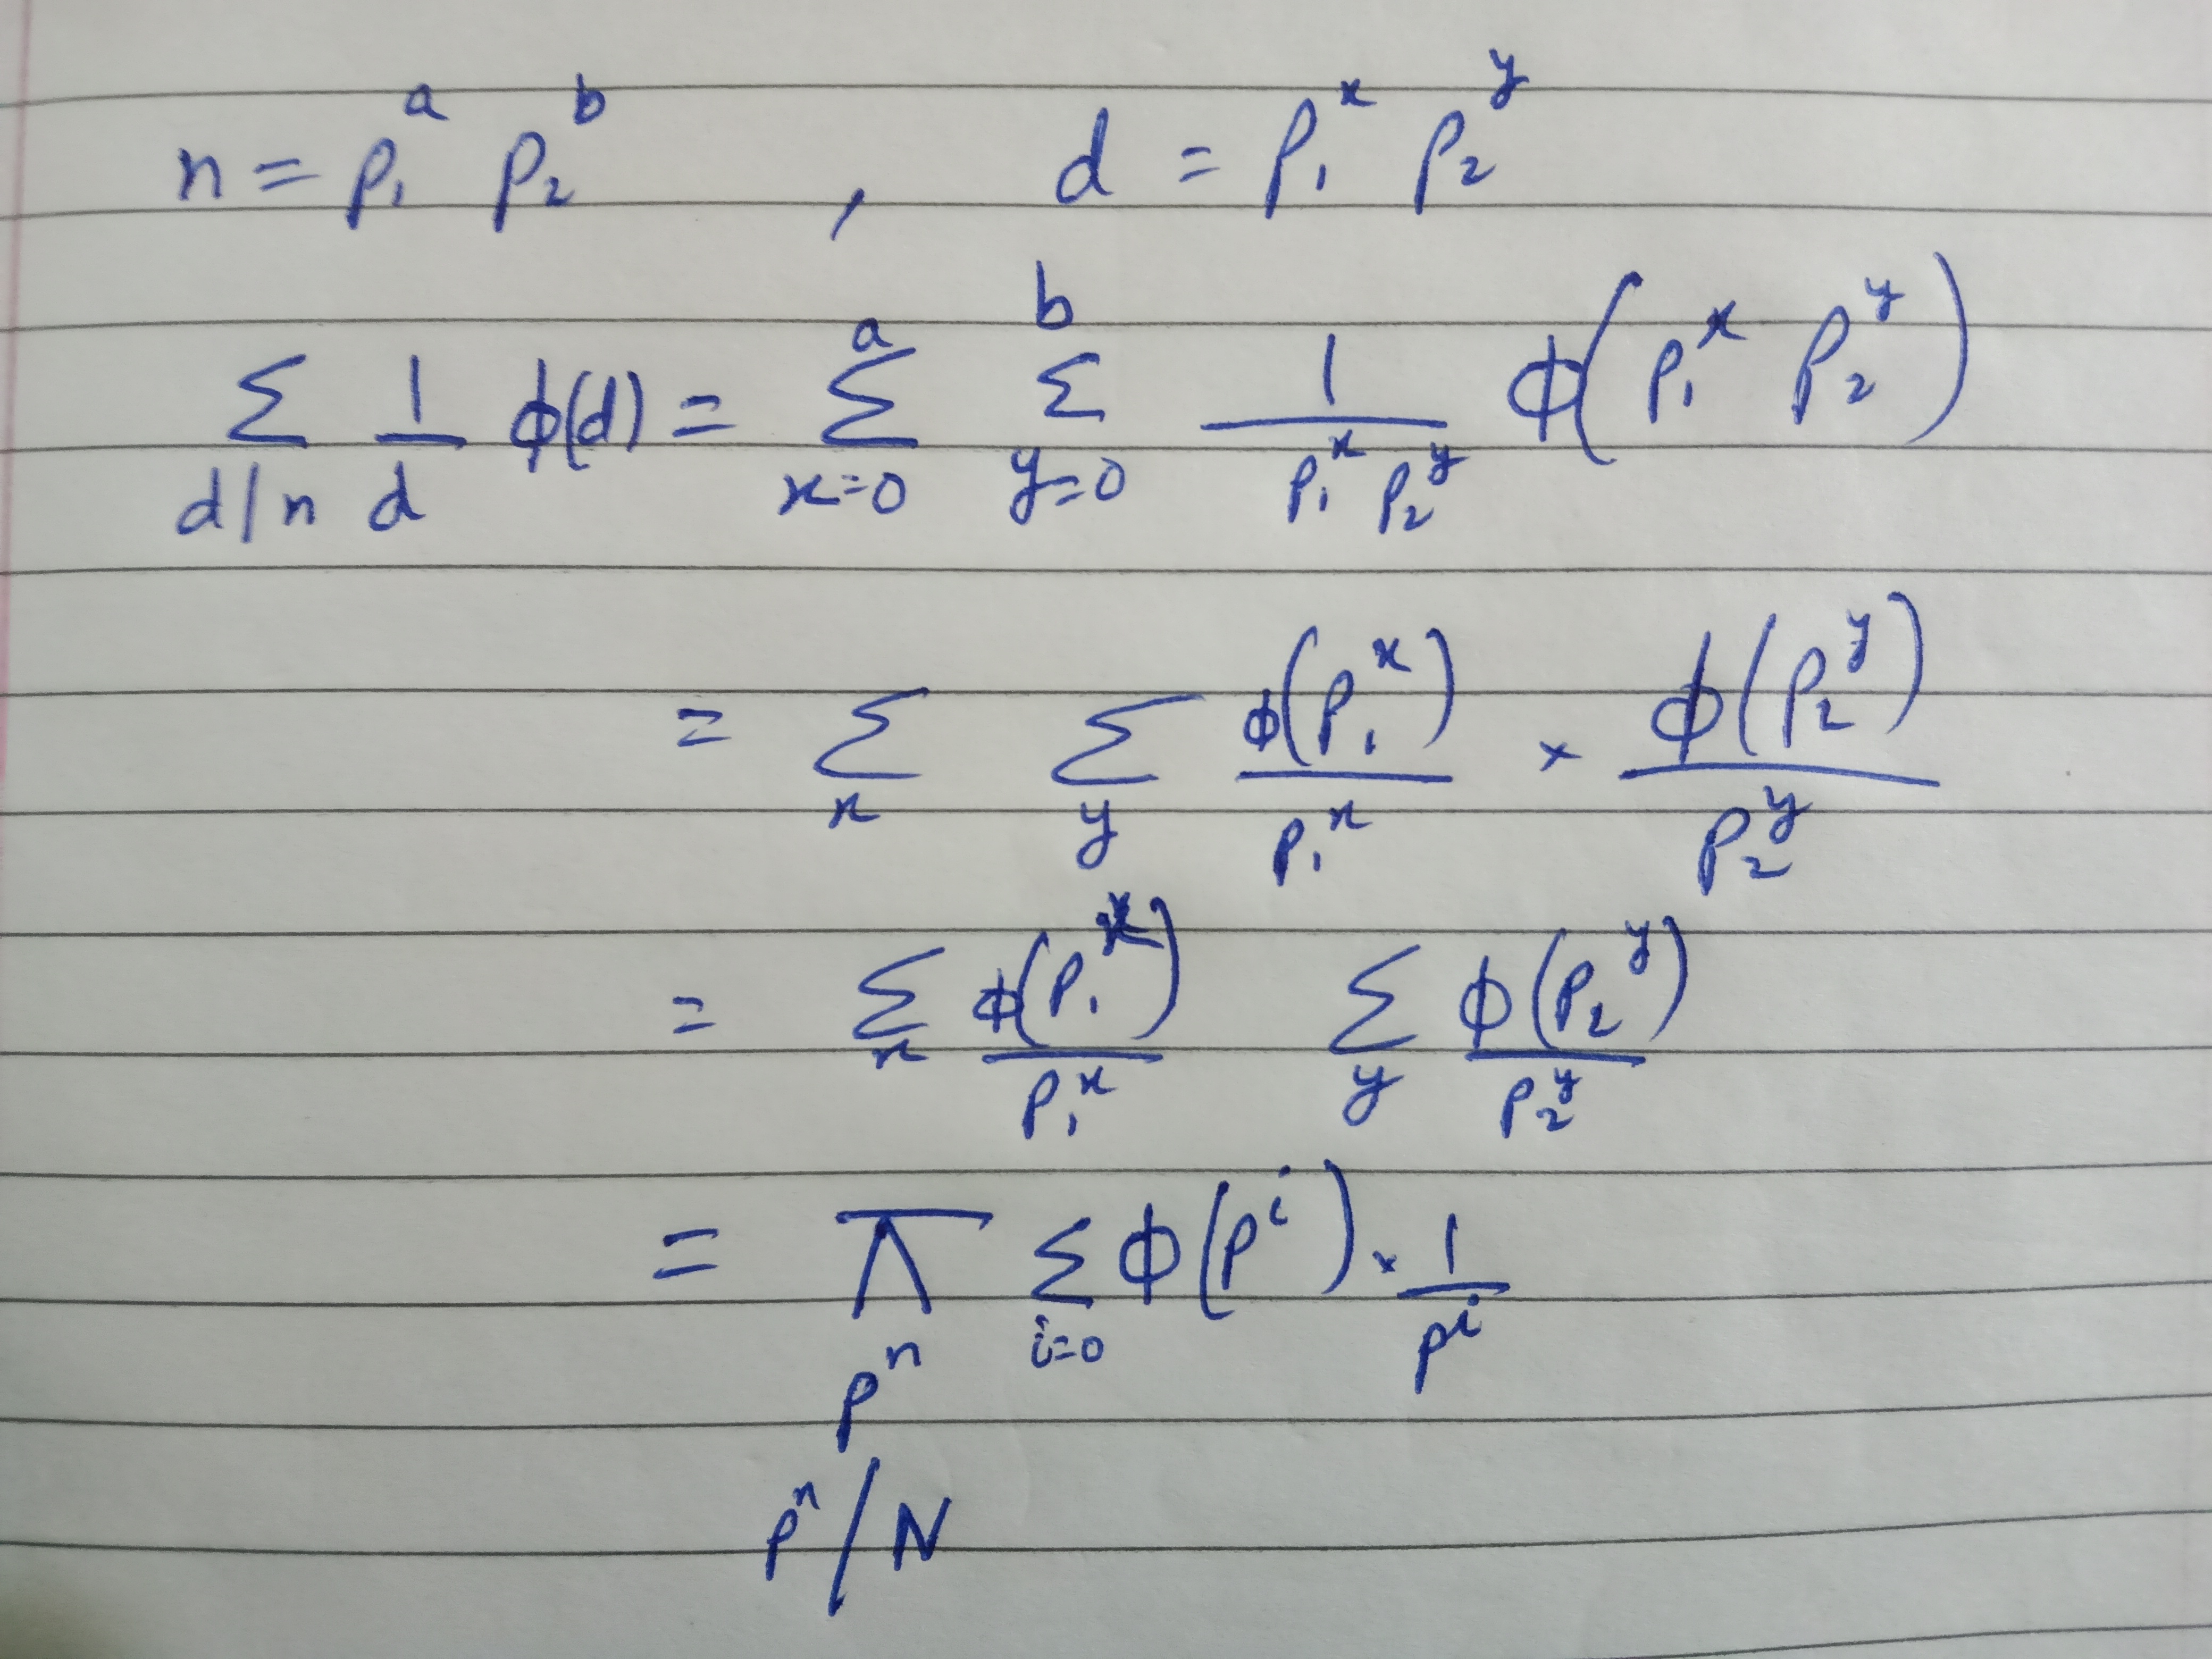 n = p₁ᵃ p₂ᵇ , d = p₁ˣ p₂ʸ
∑_{d/n} 1/d ϕ(d) = ∑_{x=0}^{a} ∑_{y=0}^{b} 1/(p₁ˣ p₂ʸ) ϕ(p₁ˣ p₂ʸ)
= ∑_x ∑_y ϕ(p₁ˣ)/p₁ˣ × ϕ(p₂ʸ)/p₂ʸ
= ∑_x ϕ(p₁ˣ)/p₁ˣ ∑_y ϕ(p₂ʸ)/p₂ʸ
= π_{pⁿ} ∑_{i=0} ϕ(pⁱ) × 1/pⁱ
pⁿ/N